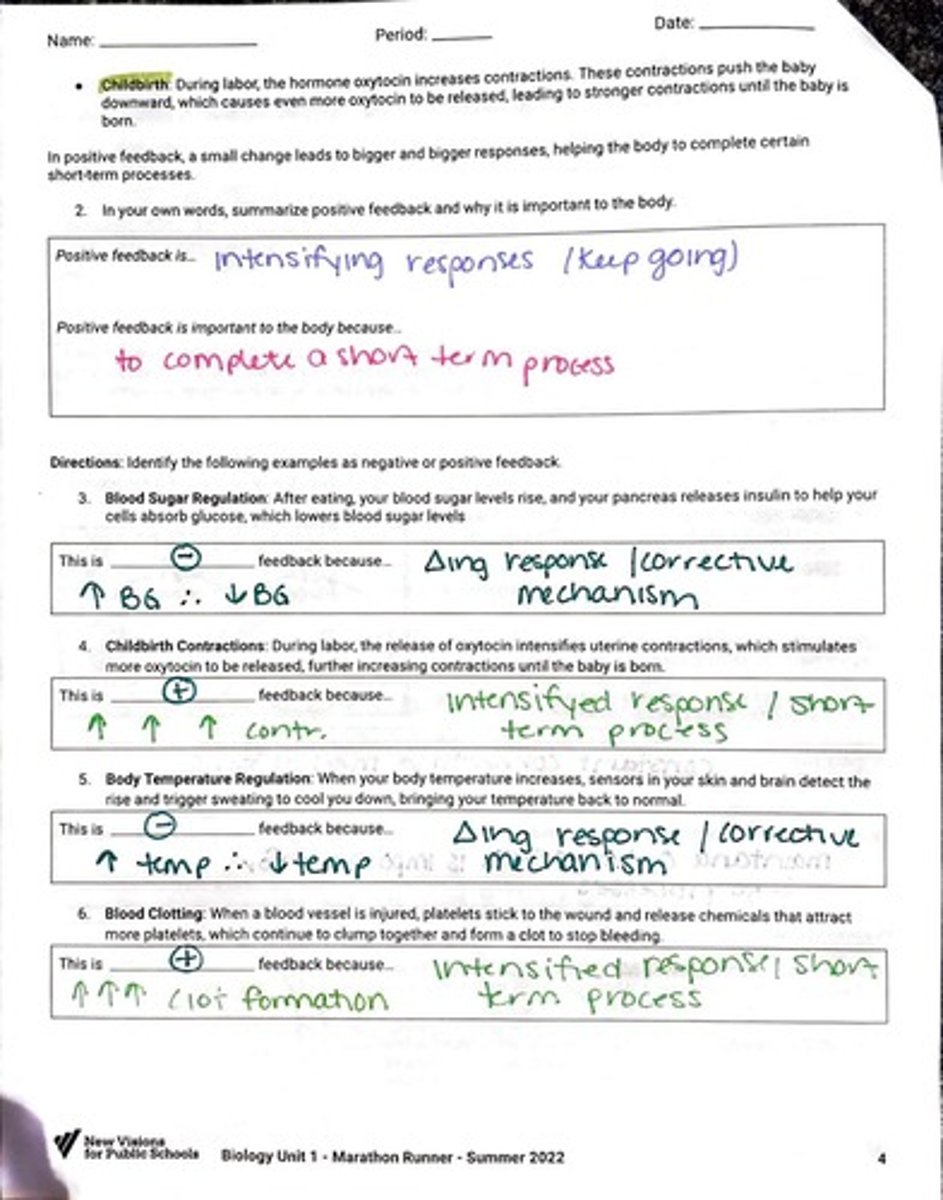 Name: ____________ Period: ______ Date: ____________
• Childbirth: During labor, the hormone oxytocin increases contractions. These contractions push the baby
downward, which causes even more oxytocin to be released, leading to stronger contractions until the baby is
born.
In positive feedback, a small change leads to bigger and bigger responses, helping the body to complete certain
short-term processes.
2. In your own words, summarize positive feedback and why it is important to the body.
Positive feedback is... intensifying responses (keep going)
Positive feedback is important to the body because..
to complete a short term process
Directions: Identify the following examples as negative or positive feedback.
3. Blood Sugar Regulation: After eating, your blood sugar levels rise, and your pancreas releases insulin to help your
cells absorb glucose, which lowers blood sugar levels
This is ⊖ feedback because... Δing response / corrective
↑ BG ∴ ↓ BG mechanism
4. Childbirth Contractions: During labor, the release of oxytocin intensifies uterine contractions, which stimulates
more oxytocin to be released, further increasing contractions until the baby is born.
This is ⊕ feedback because... Intensifyed response / short
↑ ↑ ↑ contr. term process
5. Body Temperature Regulation: When your body temperature increases, sensors in your skin and brain detect the
rise and trigger sweating to cool you down, bringing your temperature back to normal.
This is ⊖ feedback because... Δing response / corrective
↑ temp ∴ ↓ temp mechanism
6. Blood Clotting: When a blood vessel is injured, platelets stick to the wound and release chemicals that attract
more platelets, which continue to clump together and form a clot to stop bleeding.
This is ⊕ feedback because... Intensified response / short
↑↑↑ clot formation term process
New Visions
for Public Schools Biology Unit 1 - Marathon Runner - Summer 2022 4